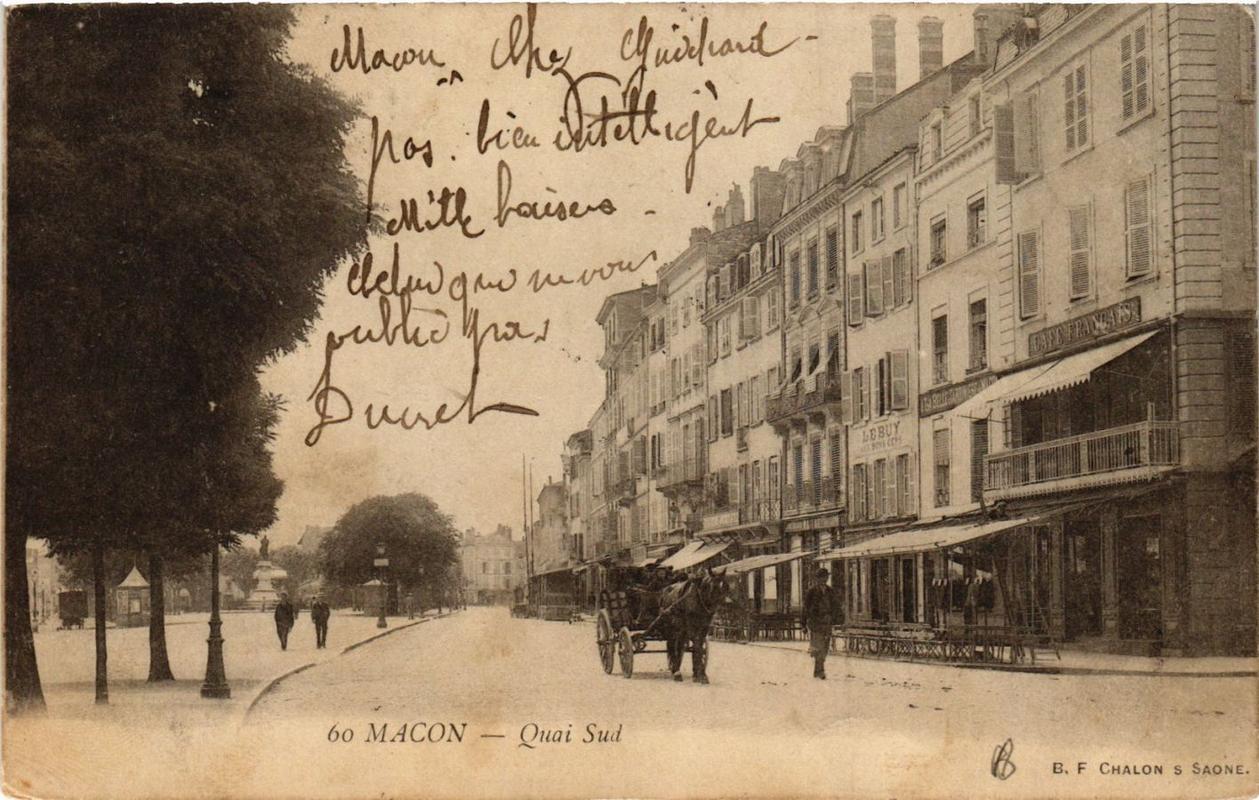 Macon Chez Guichard -
pas bien intelligent
Mille baisers -
Celui que ne vous
oublie pas
CAFE FRANÇAIS
LEBUY
60 MACON — Quai Sud
B. F CHALON S SAONE.